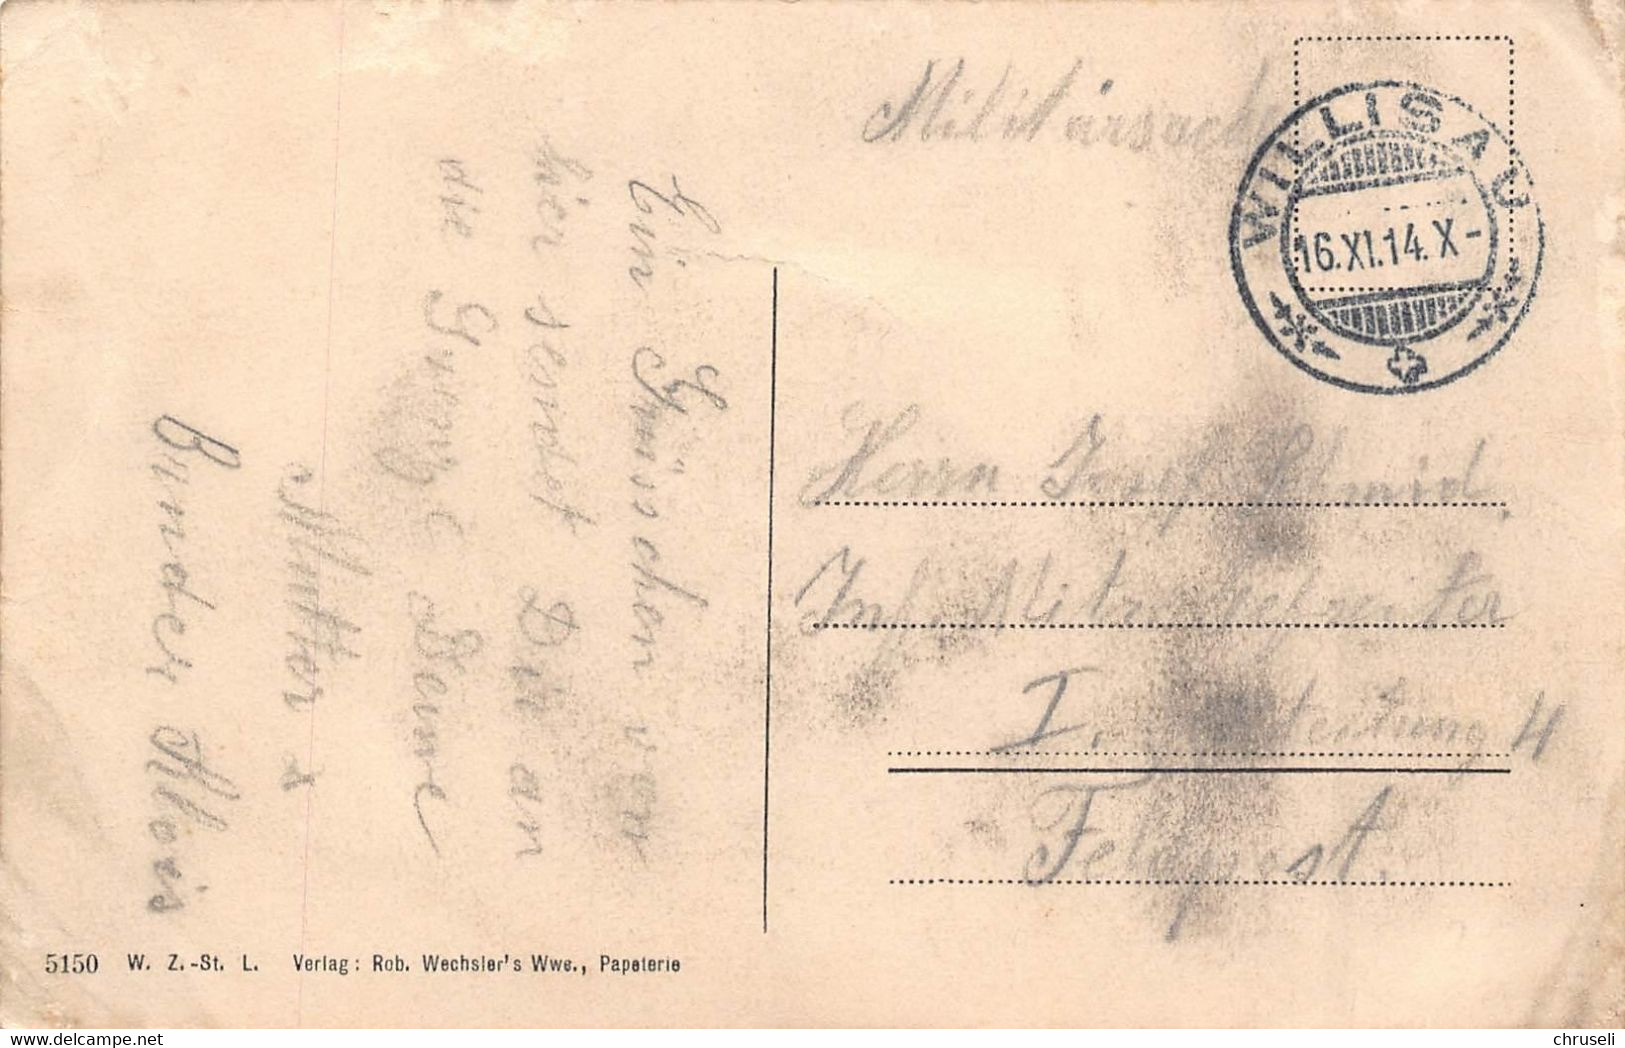 Militärsache
WILLISAU
16.XI.14. X-
Ein Grüsschen von
hier sendet Dir an
die Grenze Deine
Mutter &
Bruder Alois
Herrn Josef Schmid,
Inf. Mitr. Gefreiter
I. Abteitung 4
Feldpost.
5150 W. Z.-St. L. Verlag: Rob. Wechsler's Wwe., Papeterie
delcampe.net
chruseli